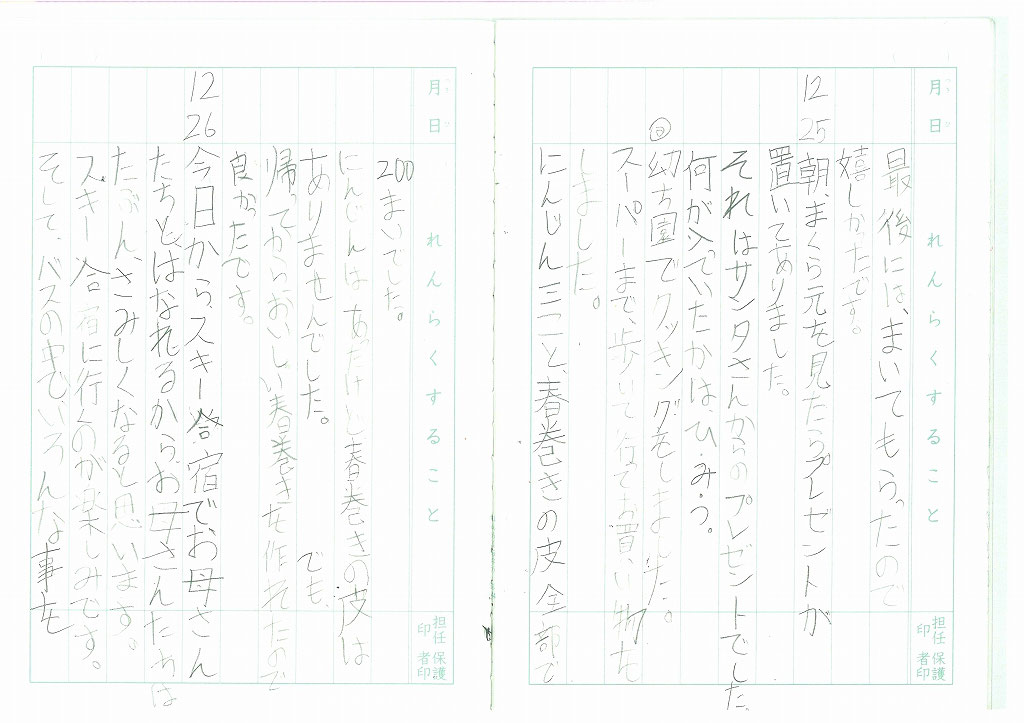 月日 れんらくすること 担任印 保護者印
最後には、まいてもらったので
嬉しかたです。
12 25 朝、まくら元を見たらプレゼントが
置いてありました。
それはサンタさんからのプレゼントでした。
何が入っていたかは、ひ・み・つ。
幼ち園でクッキングをしました。
スーパーまで、歩いて行ってお買い物を
しました。
にんじん三こと、春巻きの皮全部で
月日 れんらくすること 担任印 保護者印
200まいでした。
にんじんはあったけど春巻きの皮は
ありませんでした。 でも、
帰ってからおいしい春巻きを作れたので
良かったです。
12 26 今日から、スキー合宿でお母さん
たちとはなれるから、お母さんたちは
たぶん、さみしくなると思います。
スキー合宿に行くのが楽しみです。
そして、バスの中でいろんな事を